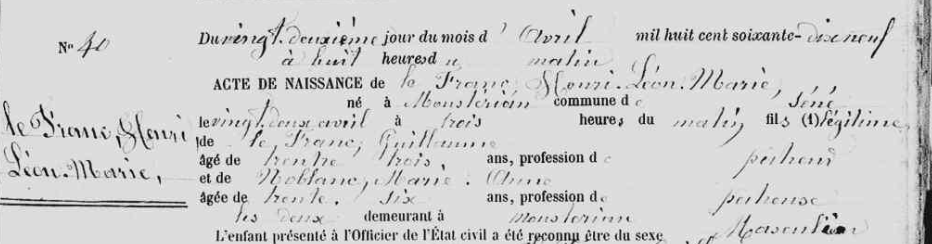 N° 40
le Franc, Henri
Léon-Marie,
Du vingt-deuxième jour du mois d'Avril mil huit cent soixante-dix neuf
à huit heures du matin
ACTE DE NAISSANCE de le Franc, Henri-Léon-Marie,
né à Moustérian commune de Séné
le vingt-deux avril à trois heures du matin, fils (1) légitime
de le Franc, Guillaume
âgé de trente trois, ans, profession de pêcheur
et de Noblanc, Marie-Anne
âgée de trente-six ans, profession de pêcheuse
les deux demeurant à Moustérian
L'enfant présenté à l'Officier de l'État civil a été reconnu être du sexe Masculin